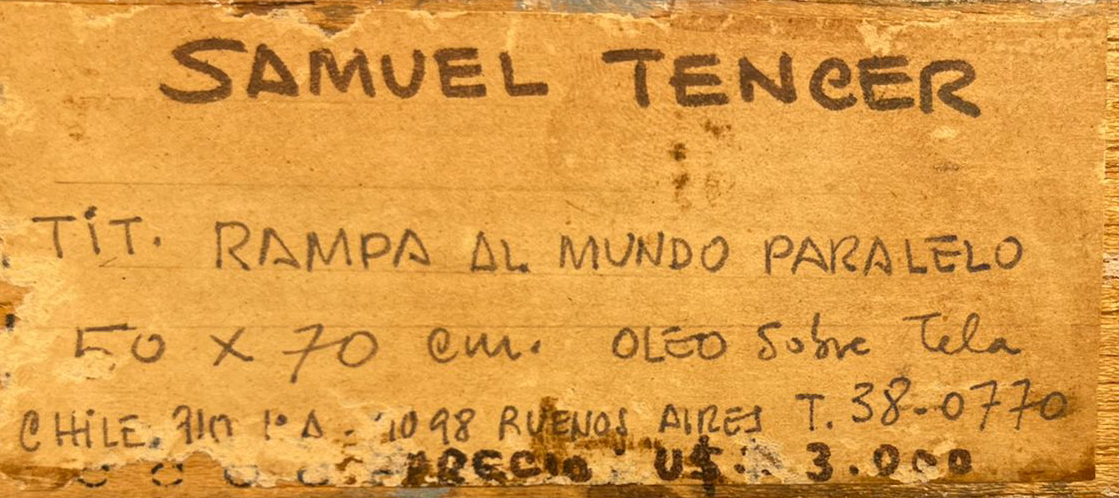 SAMUEL TENCER
TiT. RAMPA AL MUNDO PARALELO
50 x 70 cm. OLEO Sobre Tela
CHiLE. 710 1º A - 1098 BUENOS AIRES T. 38-0770
PRECIO U$ 3.000